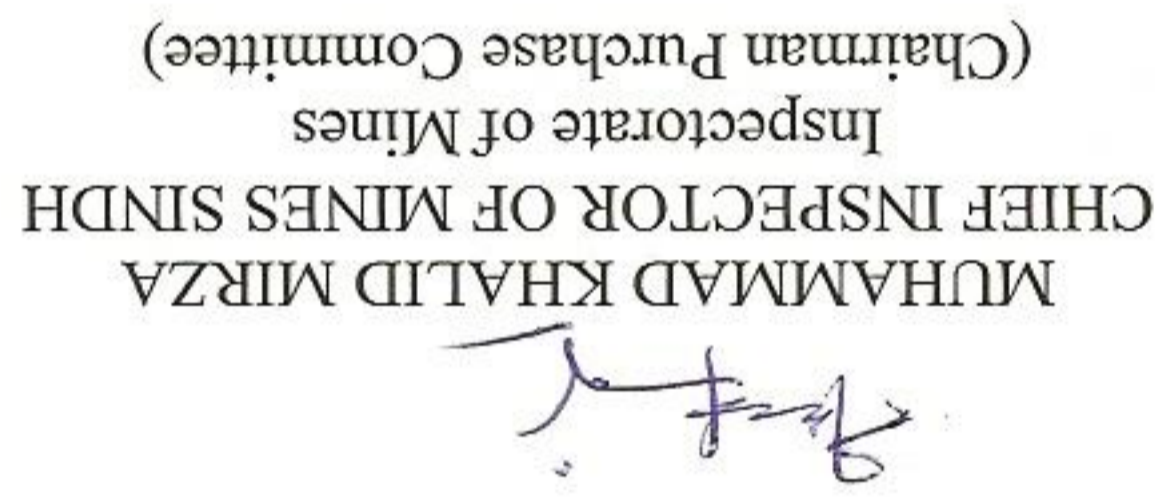 MUHAMMAD KHALID MIRZA
CHIEF INSPECTOR OF MINES SINDH
Inspectorate of Mines
(Chairman Purchase Committee)